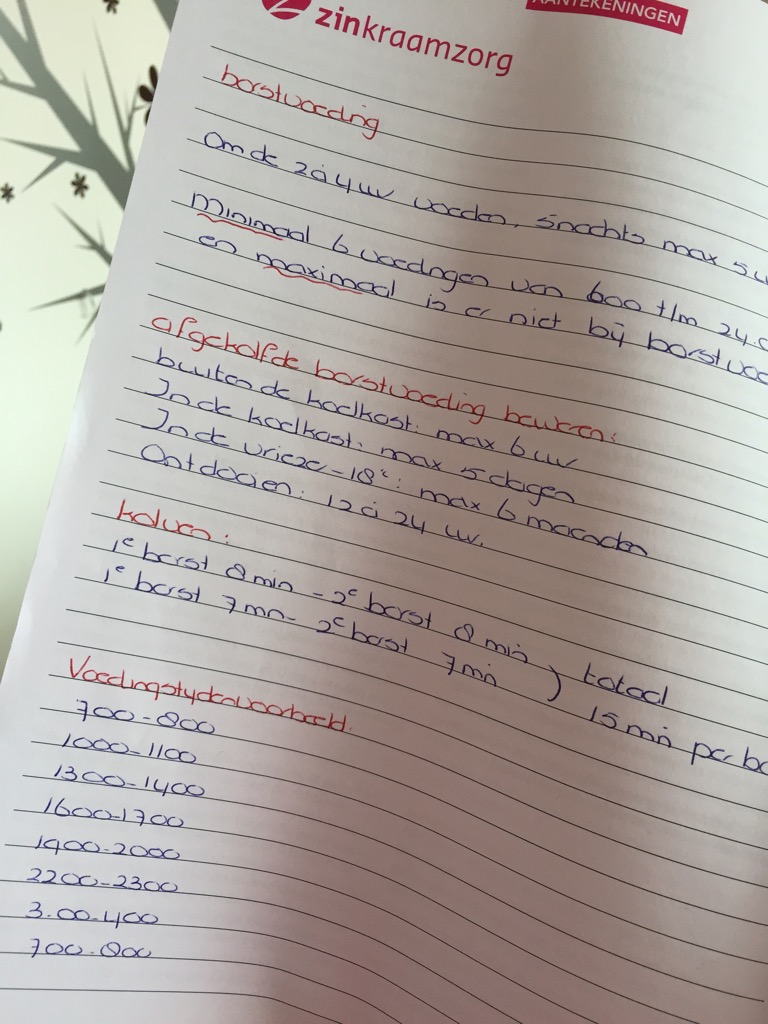 AANTEKENINGEN
zinkraamzorg
borstvoeding
Om de 2 à 4 uur voeden, 'snachts max 5 u
Minimaal 6 voedingen van 600 t/m 24.0
en maximaal is er niet bij borstvoe
afgekolfde borstvoeding bewaren:
buiten de koelkast: max 6 uur
In de koelkast: max 5 dagen
In de vrieze -18°: max 6 maanden
Ontdooien: 12 à 24 uur.
kolven:
1e borst 8 min - 2e borst 8 min
1e borst 7 min - 2e borst 7 min ) totaal
15 min per bo
Voedingstijdenvoorbeeld.
700-800
1000-1100
1300-1400
1600-1700
1900-2000
2200-2300
3.00-400
700-800